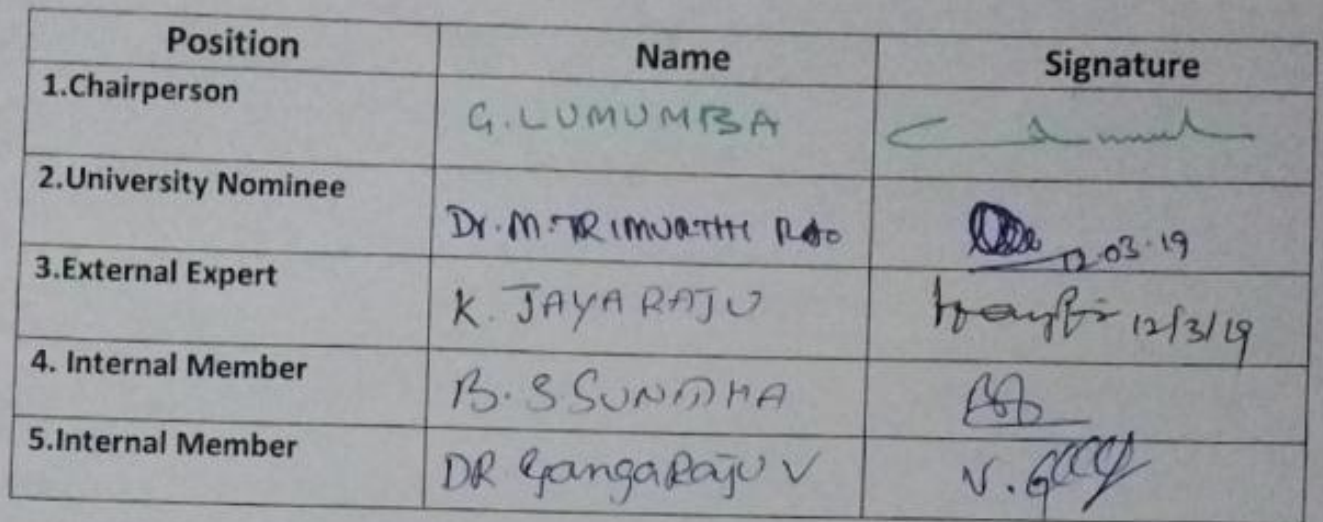 Position Name Signature
1.Chairperson G. LUMUMBA
2.University Nominee Dr. M. TRIMURTHI RAO 12.03.19
3.External Expert K. JAYA RAJU 12/3/19
4. Internal Member B. S SUNITHA
5.Internal Member DR GangaRaju V V. G